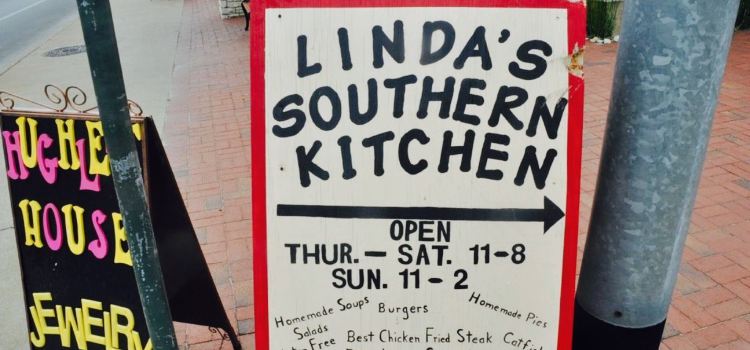 HUGHLE
HOUSE
JEWELRY
LINDA'S
SOUTHERN
KITCHEN
OPEN
THUR. — SAT. 11-8
SUN. 11 - 2
Homemade Soups Burgers Homemade Pies
Salads
Free Best Chicken Fried Steak